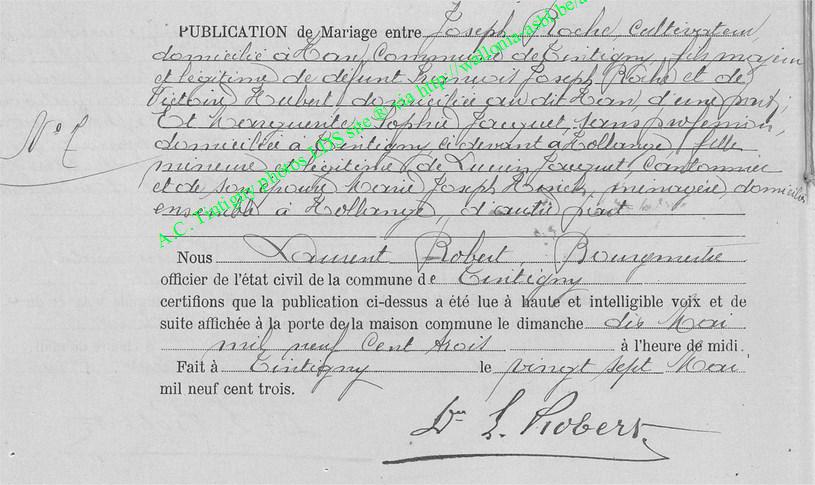 PUBLICATION de Mariage entre Joseph Roche, cultivateur,
domicilié à Han, Commune de Tintigny, fils majeur
et légitime de défunt François Joseph Roche et de
Victoire Hubert, domiciliée au dit Han, d'une part;
Et Marguerite Sophie Jacquet, sans profession,
domiciliée à Tintigny ci devant à Hollange, fille
mineure et légitime de Lucien Jacquet, Cantonnier
et de son épouse Marie Joseph, ménagère, domiciliés
ensemble à Hollange, d'autre part
Nous Laurent Robert, Bourgmestre
officier de l'état civil de la commune de Tintigny
certifions que la publication ci-dessus a été lue à haute et intelligible voix et de
suite affichée à la porte de la maison commune le dimanche dix Mai
mil neuf cent trois à l'heure de midi.
Fait à Tintigny le vingt sept Mai
mil neuf cent trois.
Dr L. Robert
A.C. Tintigny photos LDS site ® via http://wallonia.asbl.be/